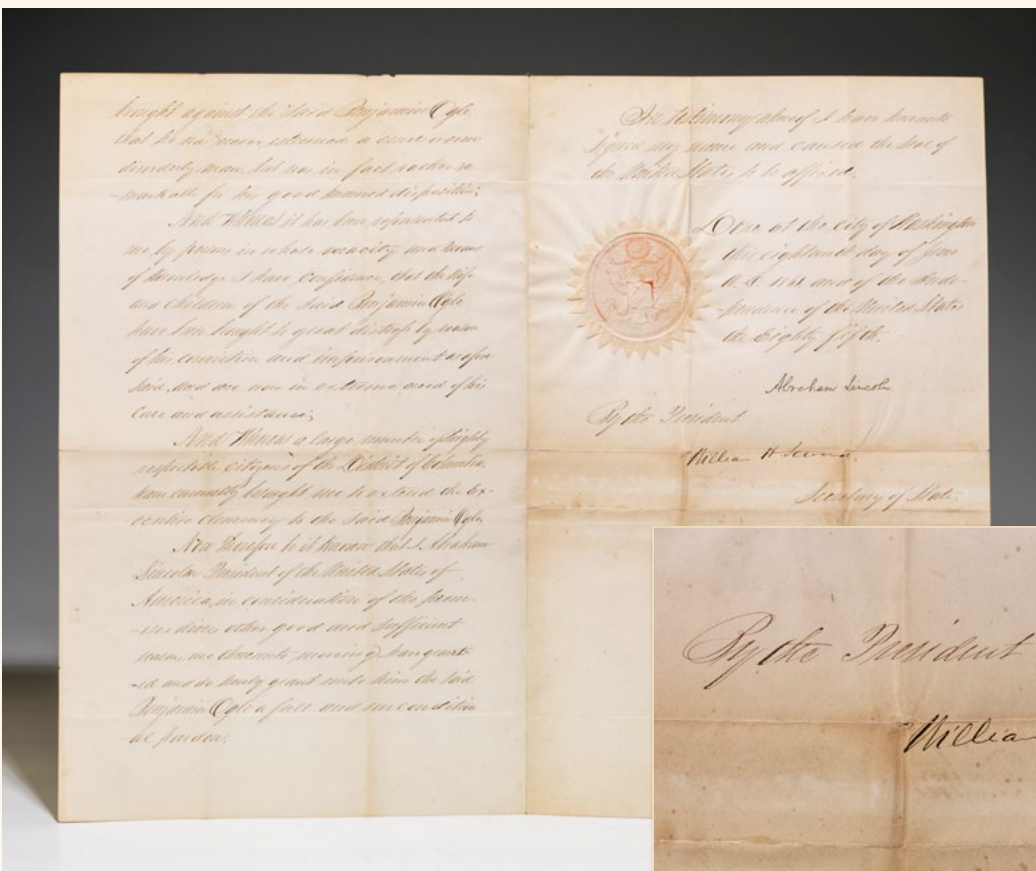 brought against the said Benjamin Ogle
that he was never esteemed a
disorderly man, but was in fact rather re
-markable for his good humored disposition;
And Whereas it has been represented to
me by persons in whose veracity and means
of knowledge I have confidence, that the wife
and children of the said Benjamin Ogle
have been brought to great distress by reason
of his conviction and imprisonment as afore
said, and are now in extreme need of his
care and assistance;
And Whereas a large number of highly
respectable citizens of the District of Columbia
have earnestly besought me to extend the Ex-
ecutive clemency to the said Benjamin Ogle
Now therefore be it known that I Abraham
Lincoln President of the United States of
America, in consideration of the prem-
-ises divers other good and sufficient
reasons me thereunto moving, have grant-
-ed and do hereby grant unto him the said
Benjamin Ogle a full and uncondition
-al pardon.
In testimony whereof I have hereunto
signed my name and caused the Seal of
the United States to be affixed.
Done at the City of Washington
this eighteenth day of June
A.D. 1861 and of the Inde-
-pendence of the United States
the Eighty fifth.
Abraham Lincoln
By the President
William H. Seward.
Secretary of State
By the President
Willia